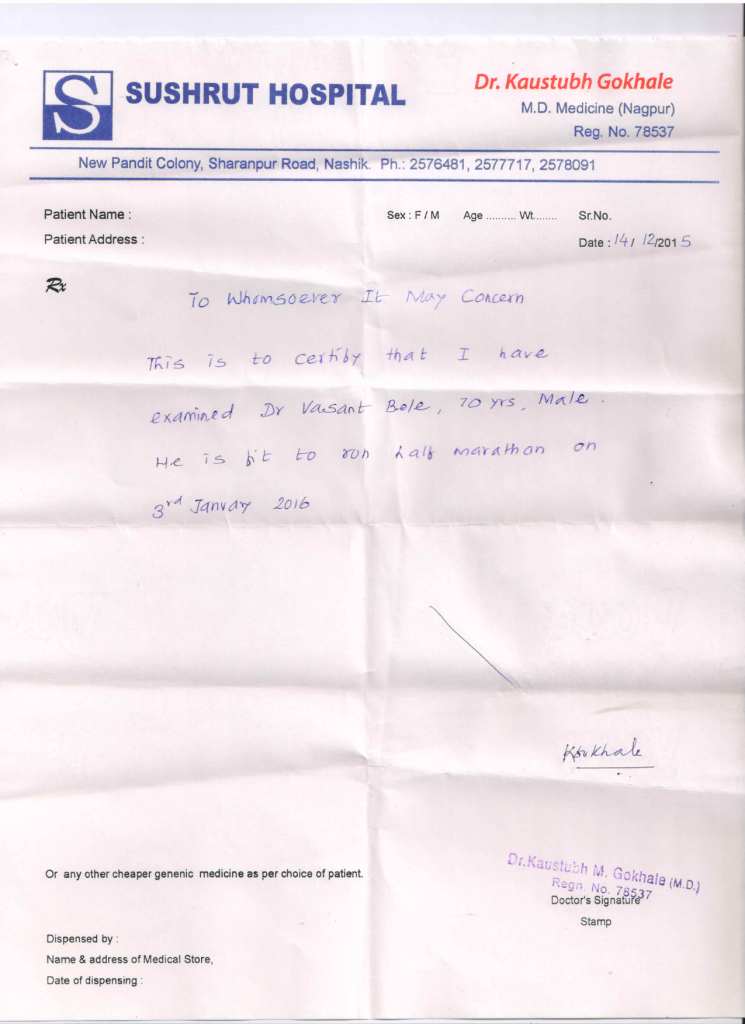 S SUSHRUT HOSPITAL
Dr. Kaustubh Gokhale
M.D. Medicine (Nagpur)
Reg. No. 78537
New Pandit Colony, Sharanpur Road, Nashik. Ph.: 2576481, 2577717, 2578091
Patient Name : Sex : F / M Age .......... Wt........ Sr.No.
Patient Address : Date : 14/ 12/2015
Rx
To Whomsoever It May Concern
This is to certify that I have
examined Dr Vasant Bele, 70 yrs, Male.
He is fit to run half marathon on
3rd January 2016
Or any other cheaper genenic medicine as per choice of patient.
Dr.Kaustubh M. Gokhale (M.D.)
Regn. No. 78537
Doctor's Signature
Stamp
Dispensed by :
Name & address of Medical Store,
Date of dispensing :